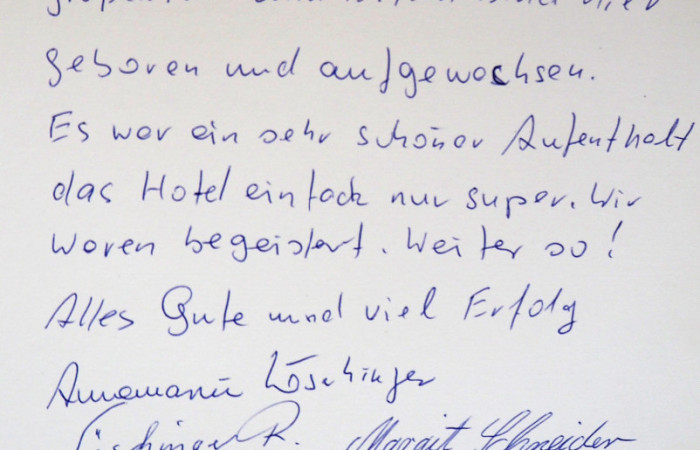 geboren und aufgewachsen.
Es war ein sehr schöner Aufenthalt
das Hotel einfach nur super. Wir
waren begeistert. Weiter so!
Alles Gute und viel Erfolg
Annamarie Löschinger
R. Margit Schneider